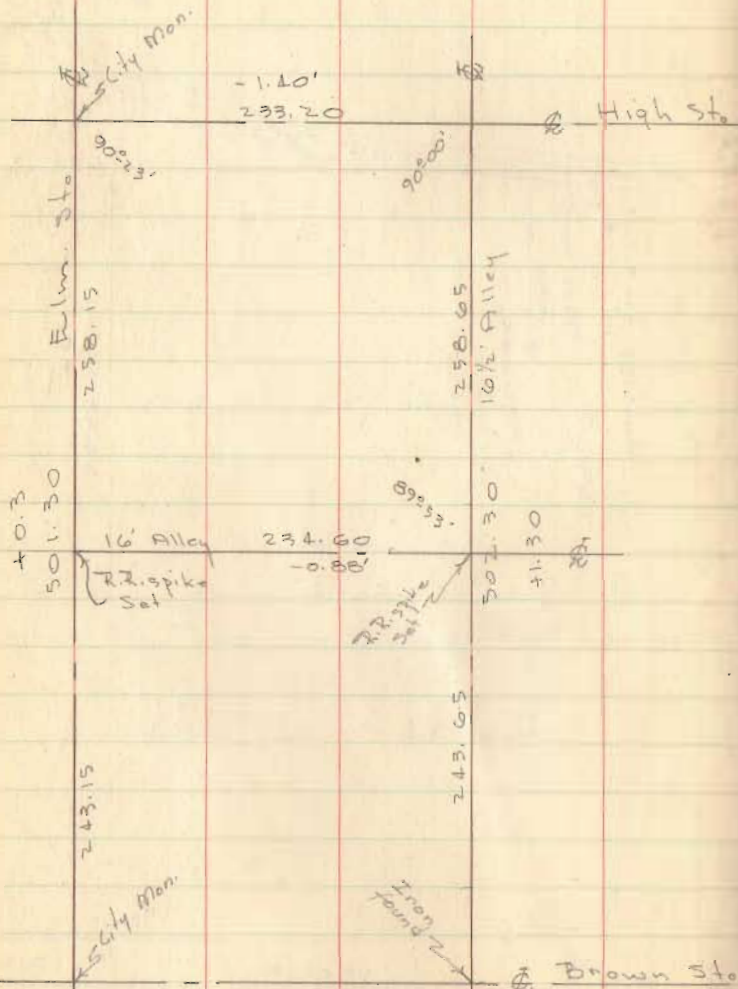 City Mon.
℄
℄
-1.40'
233.20
℄ High St.
90°23'
90°00'
Elm. St.
258.15
258.65
16½' Alley
89°53'
+0.3
501.30
16' Alley
234.60
-0.88'
R.R. spike
Set
R.R. spike
Set
502.30
+1.30
℄
243.15
243.65
City Mon.
Iron
found
℄ Brown St.